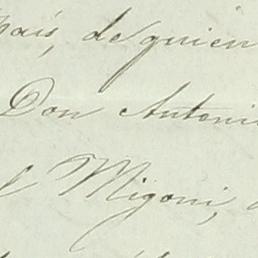 País, de quien
Don Antoni
l Migoni,